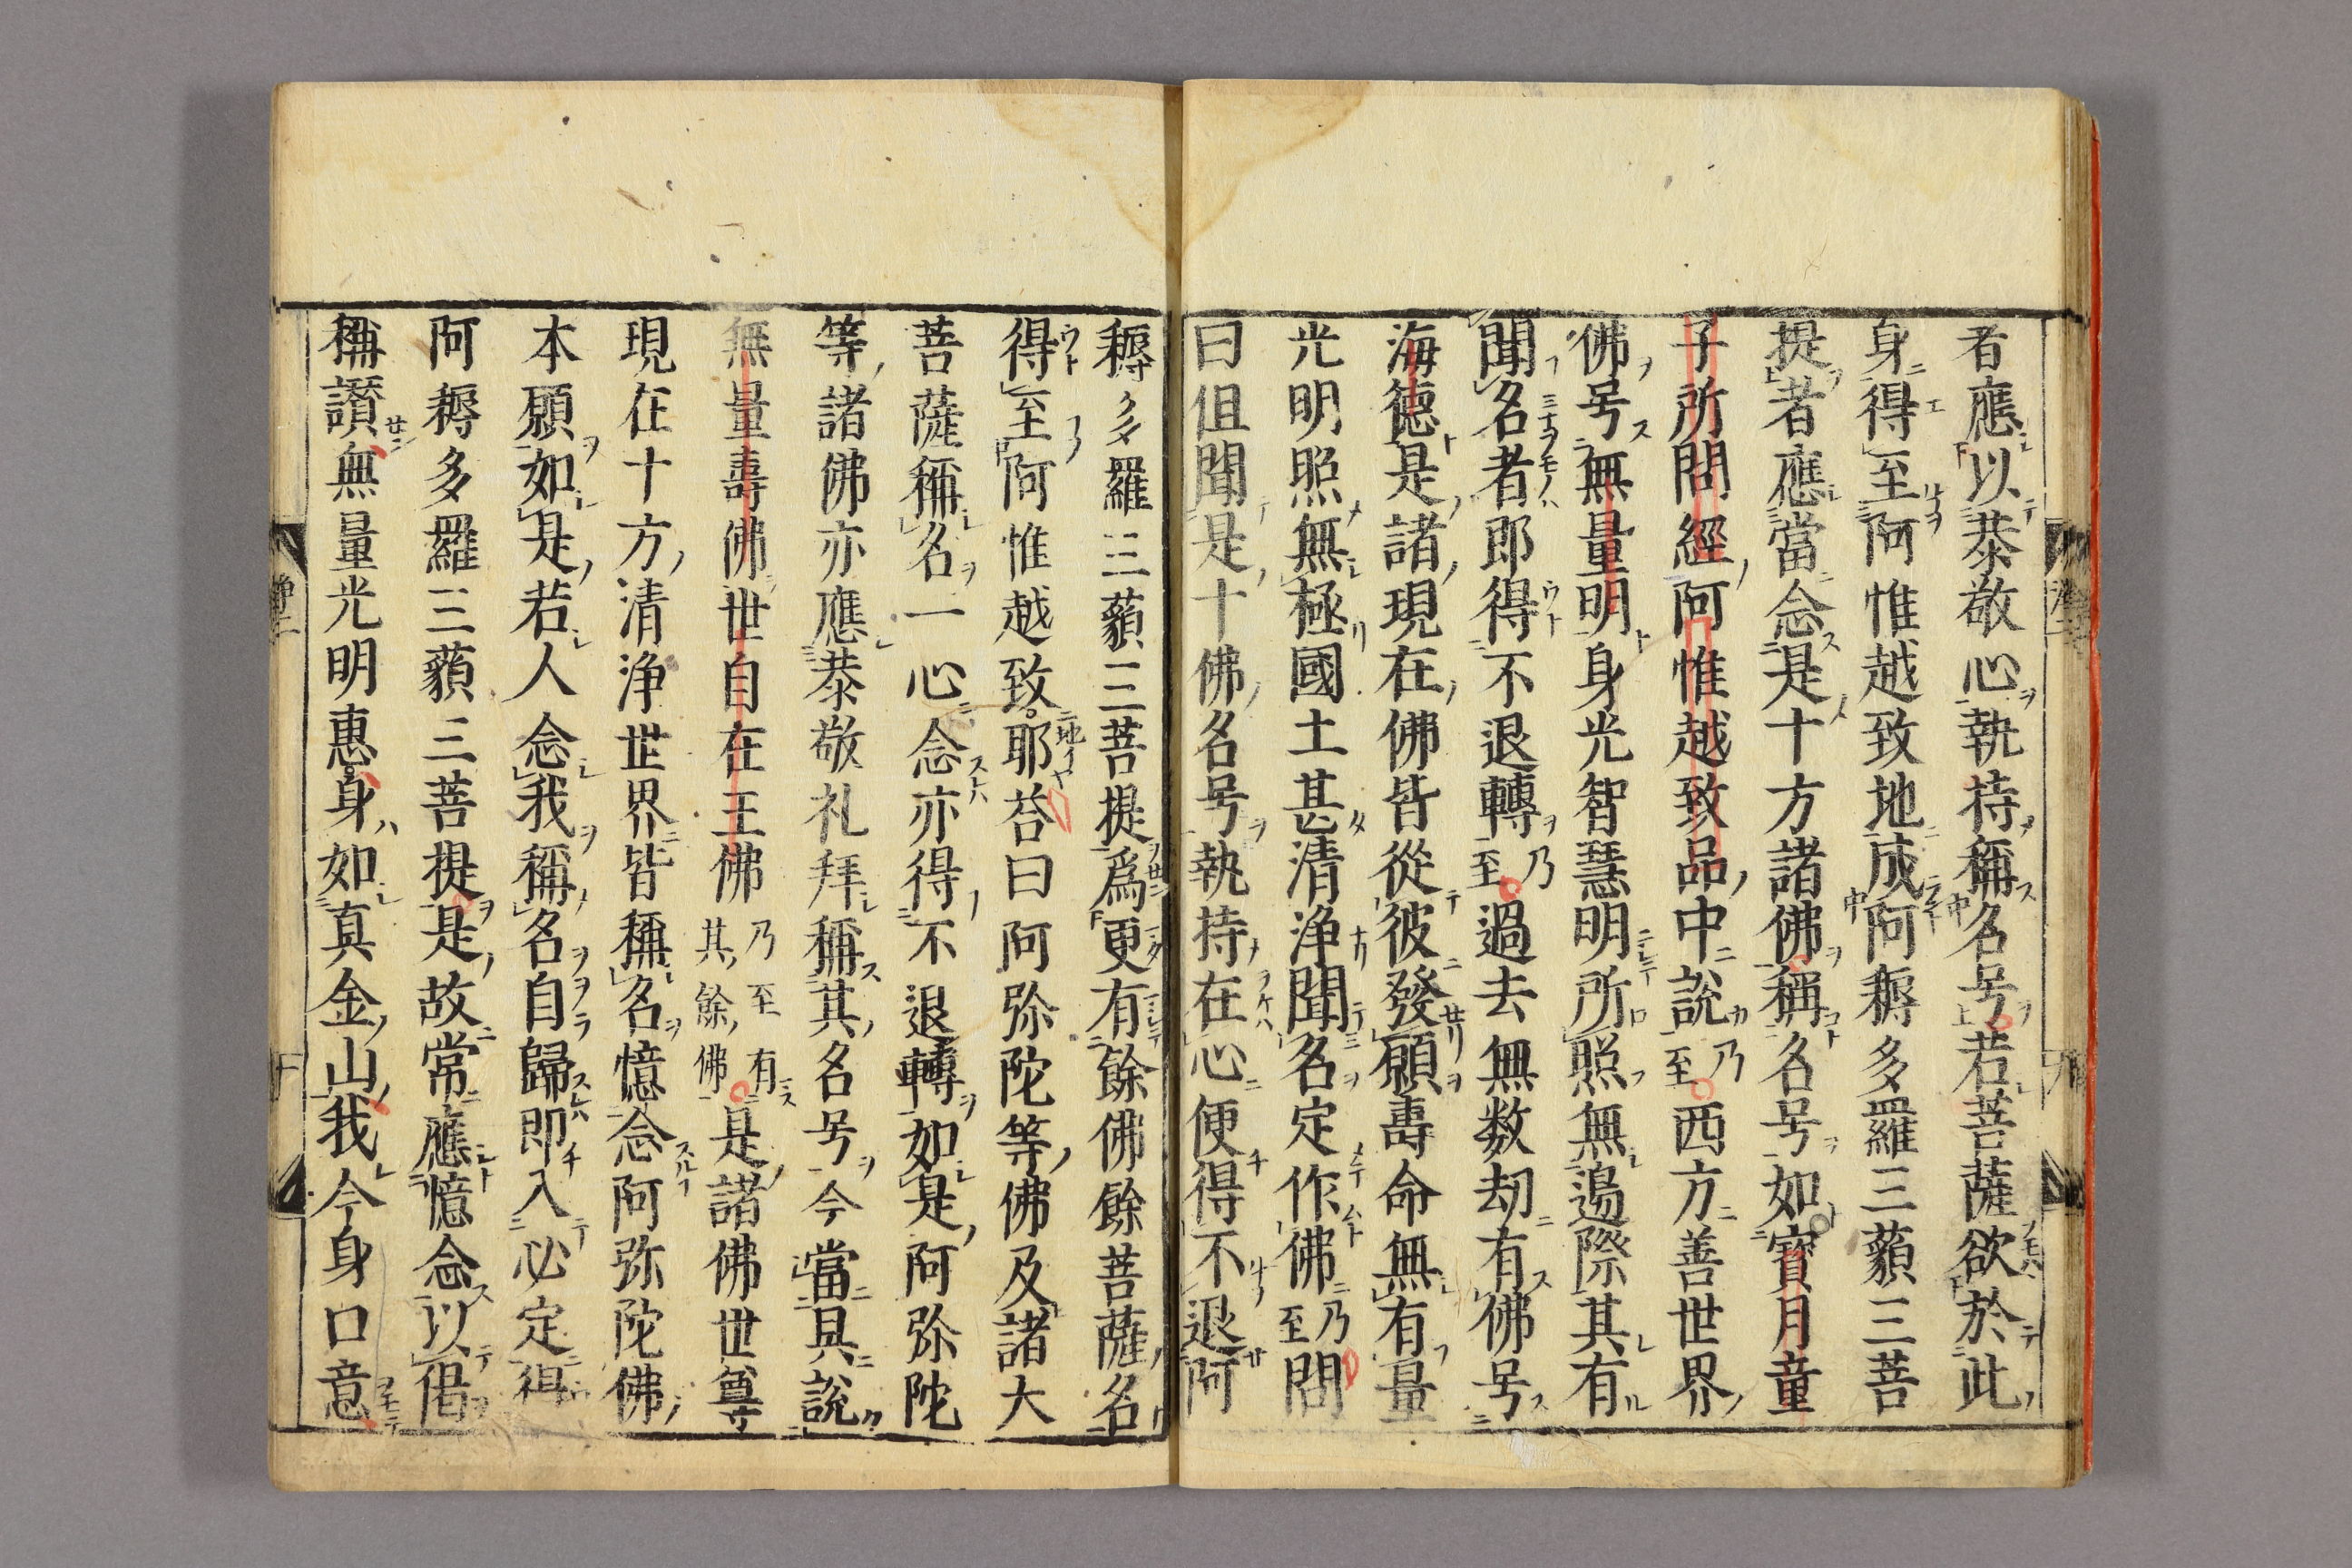 者應以恭敬心執持稱名号若菩薩欲於此
身得至阿惟越致地成阿耨多羅三藐三菩
提者應當念是十方諸佛稱名号如寳月童
子所問經阿惟越致品中說乃至西方善世界
佛号無量明身光智慧明所照無邊際其有
聞名者即得不退轉乃至過去無数劫有佛号
海徳是諸現在佛皆從彼發願壽命無有量
光明照無極國土甚清浄聞名定作佛乃至問
曰但聞是十佛名号執持在心便得不退阿
耨多羅三藐三菩提爲更有餘佛餘菩薩名
得至阿惟越致耶荅曰阿弥陀等佛及諸大
菩薩稱名一心念亦得不退轉如是阿弥陀
等諸佛亦應恭敬礼拜稱其名号今當具說
無量壽佛世自在王佛乃至有其餘佛是諸佛世尊
現在十方清浄世界皆稱名憶念阿弥陀佛
本願如是若人念我稱名自歸即入必定得
阿耨多羅三藐三菩提是故常應憶念以偈
稱讃無量光明惠身如真金山我今身口意